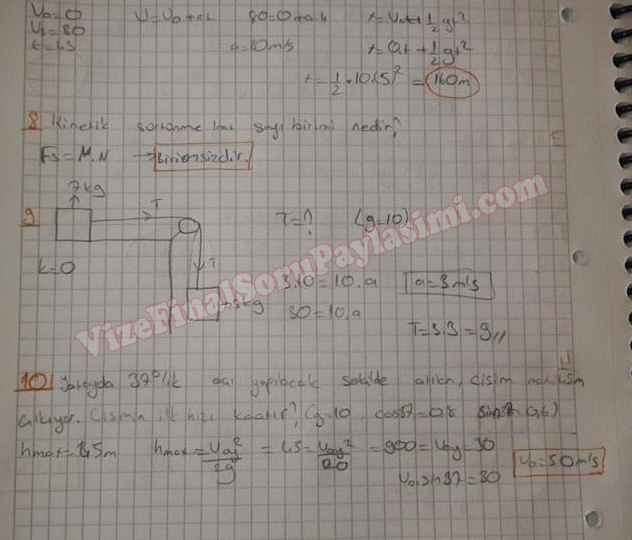 V₀=0 V=V₀+at 80=0+a.4 x=V₀t+½gt²
V=80
t=4s a=10m/s x=0.t+½gt²
x=½.10.(5)² = 160m
8 Kinetik sürtünme kat sayı birimi nedir?
Fs=M.N → Birimsizdir.
7kg
T
9 T=? (g=10)
k=0
T
3kg
3.10=10.a a=3m/s
30=10.a
T=3.3=9,,
10 Yatayda 37°lik açı yapılacak şekilde atılan cisim max 45m
çıkıyor. Cismin ilk hızı kaçtır? (g=10, cos37=0,8 sin37=0,6)
hmax=45m hmax=V₀y²/2g = 45=V₀y²/20 = 900=V₀y=30
V₀.sin37=30 V₀=50m/s
VizeFinalSoruPaylasimi.com